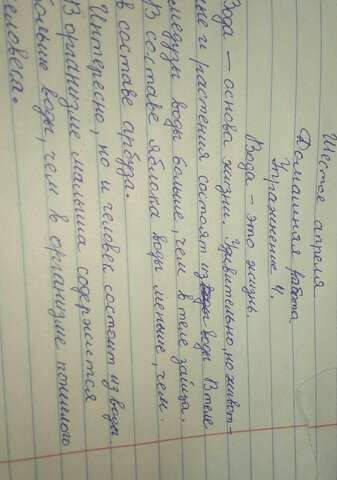 Шестое апреля
Домашняя работа
Упражнение 4.
Вода - это жизнь.
Вода - основа жизни. Удивительно, но живот-
ные и растения состоят из воды. В теле
медузы воды больше, чем в теле зайца.
В составе яблока воды меньше, чем
в составе арбуза.
Интересно, но и человек состоит из воды.
В организме малыша содержится
больше воды, чем в организме пожилого
человека.